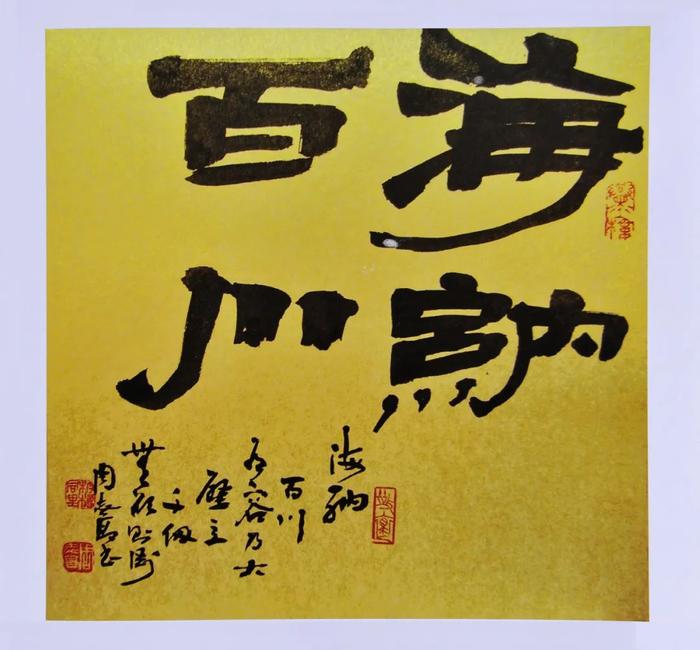 海納
百川
海納
百川
有容乃大
壁立
千仞
無欲則剛